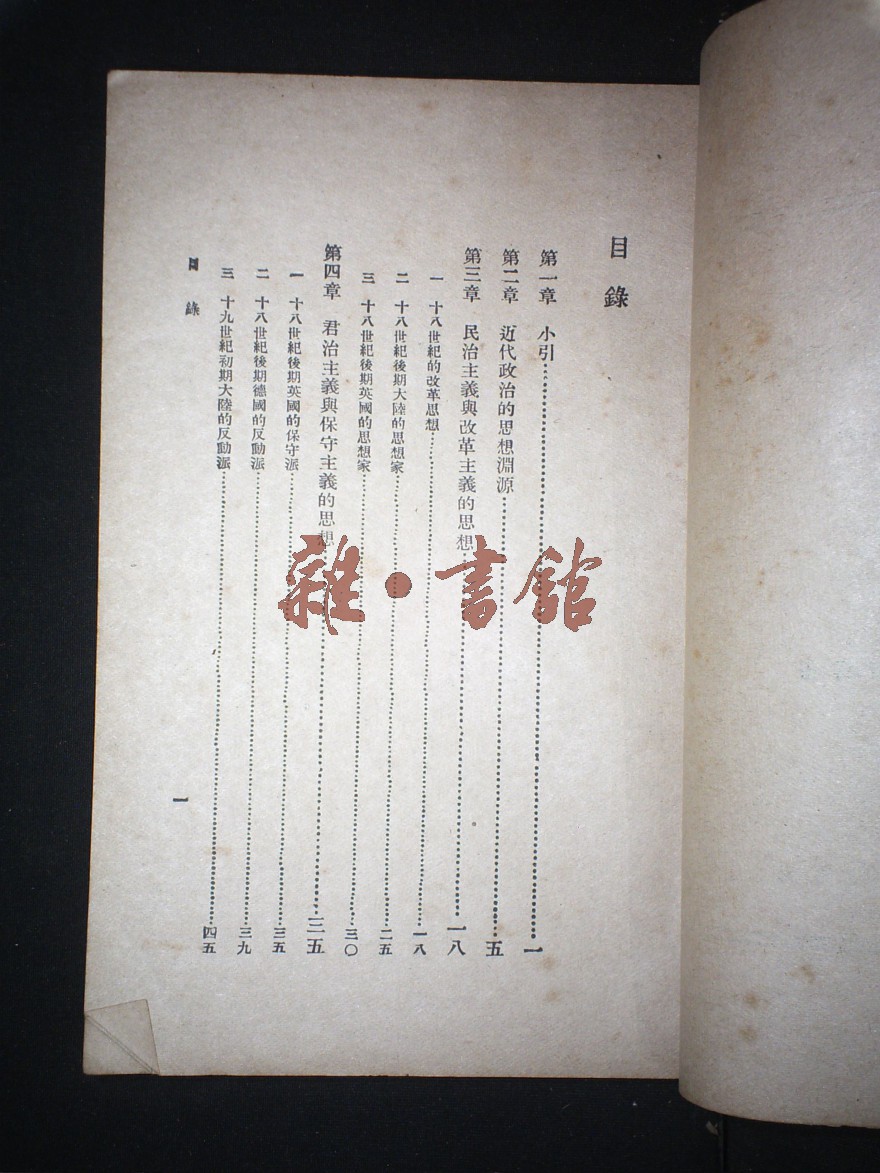 目錄
第一章 小引……一
第二章 近代政治的思想淵源……五
第三章 民治主義與改革主義的思想……一八
一 十八世紀的改革思想……一八
二 十八世紀後期大陸的思想家……二五
三 十八世紀後期英國的思想家……三〇
第四章 君治主義與保守主義的思想……三五
一 十八世紀後期英國的保守派……三五
二 十八世紀後期德國的反動派……三九
三 十九世紀初期大陸的反動派……四五
目錄
一
雜・書館